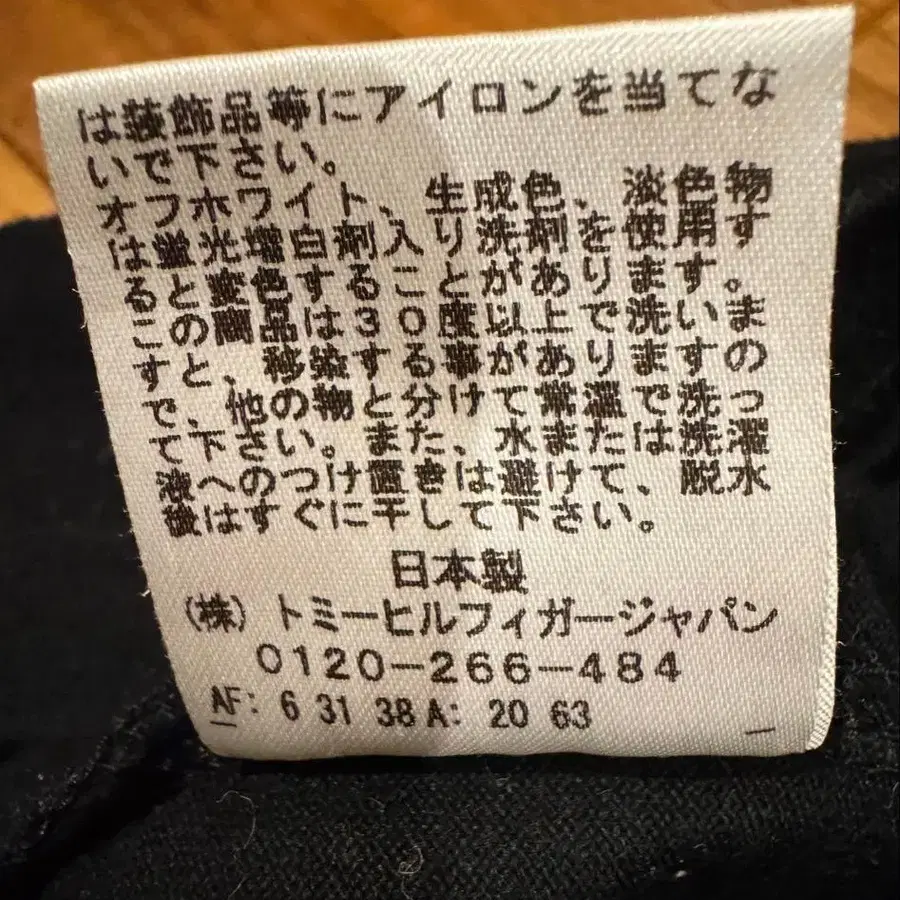 は装飾品等にアイロンを当てな
いで下さい。
オフホワイト、生成色、淡色物
は蛍光増白剤入り洗剤を使用す
ると変色することがあります。
この商品は30度以上で洗いま
すと、移染する事がありますの
で、他の物と分けて常温で洗っ
て下さい。また、水または洗濯
液へのつけ置きは避けて、脱水
後はすぐに干して下さい。
日本製
(株) トミーヒルフィガージャパン
0120-266-484
AF: 6 31 38 A: 20 63